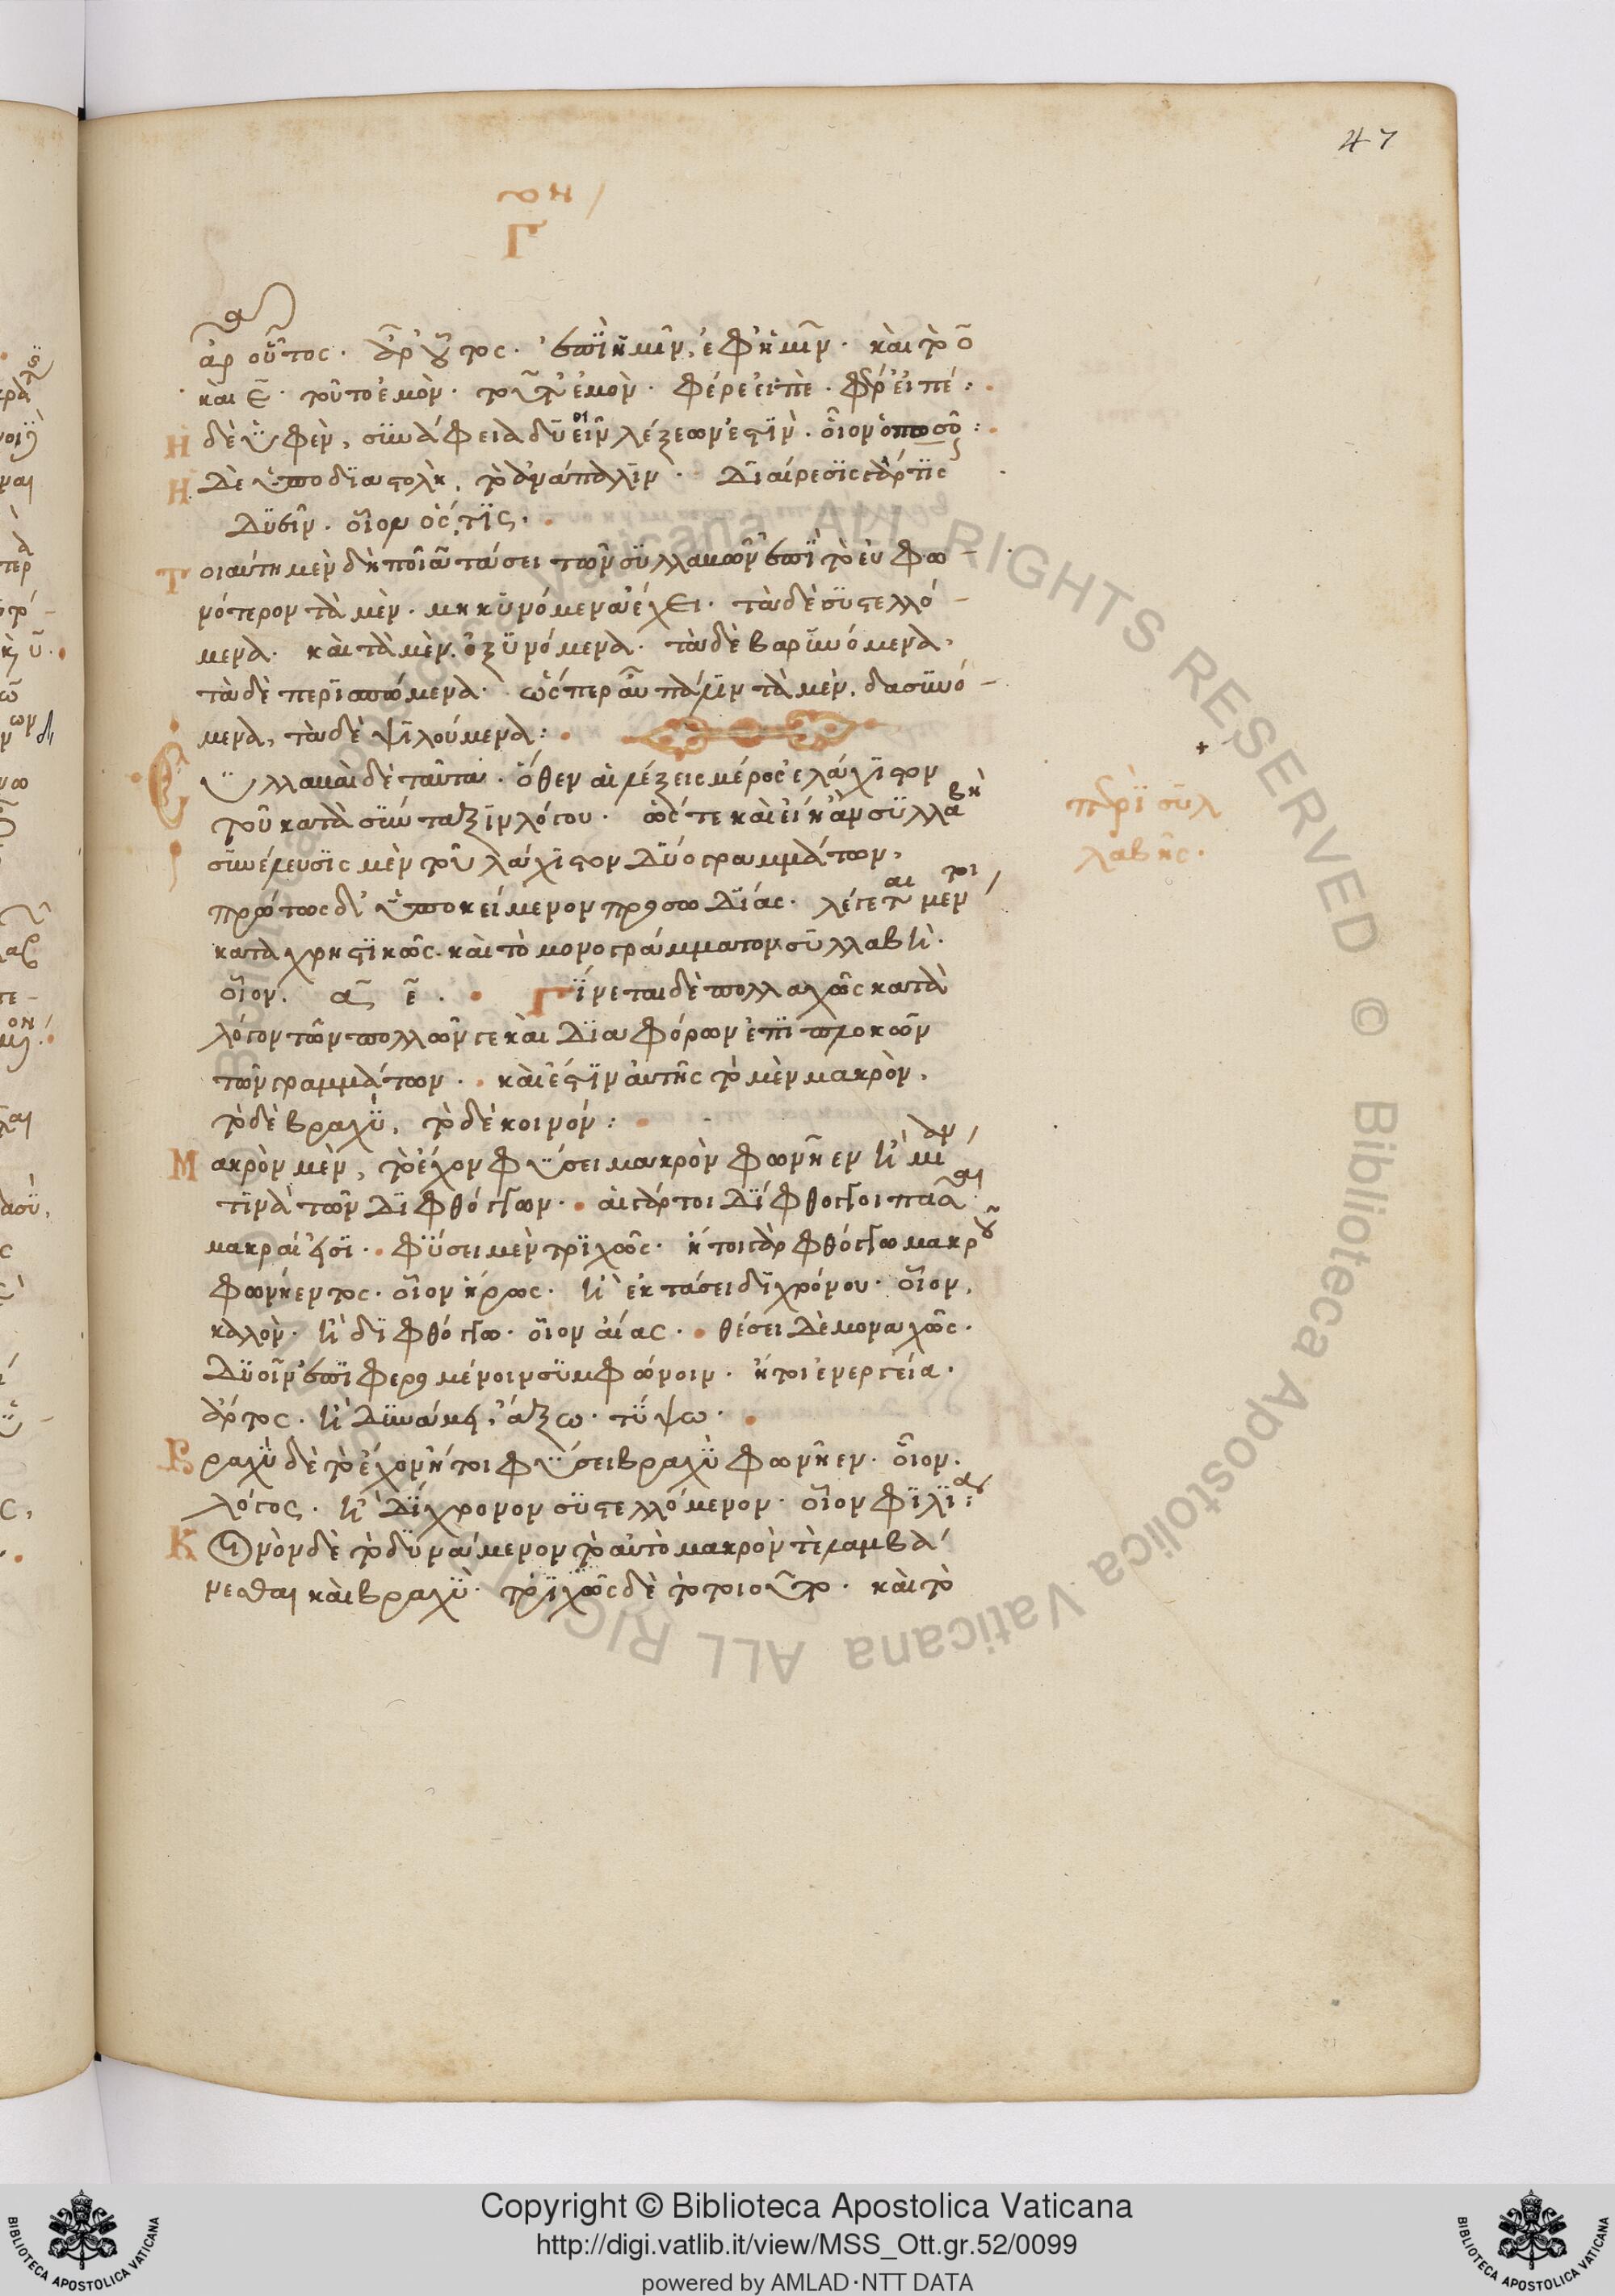 47
Γ
ἄρ οὗτος. ἆρ' οὗτος. ἐπὶ ἡμῖν, ἐφ' ἡμῖν. καὶ τὸ ο
καὶ ε. τοῦτο ἐμὸν. τοὐμὸν. φέρε εἰπὲ. φέρ' εἰπέ:
Ἡ δὲ ὑφὲν, συνάφεια δυεῖν λέξεων ἐστὶν. οἷον
Ἡ δὲ ὑποδιαστολὴ, τὸ ἀνάπαλιν. διαίρεσις γάρ τις
δυεῖν. οἷον ὅς,τις.
Τοιαύτη μὲν δὴ ποιᾶ τάσει τῶν συλλαβῶν ἐπὶ τὸ εὐφω-
νότερον τὰ μὲν. μηκυνόμενα ἔχει. τὰ δὲ συστελλό-
μενα. καὶ τὰ μὲν. ὀξυνόμενα. τὰ δὲ βαρυνόμενα,
τὰ δὲ περισπώμενα. ὥσπερ αὖ πάλιν τὰ μὲν. δασυνό-
μενα, τὰ δὲ ψιλούμενα:
Συλλαβαὶ δὲ ταῦτα. ὅθεν αἱ λέξεις μέρος ἐλάχιστον
τοῦ κατὰ σύνταξιν λόγου. ὥστε καὶ εἴη ἂν συλλαβὴ
συνέλευσις μὲν τοὐλάχιστον δύο γραμμάτων,
πρώτως δ' ὑποκείμενον προσωδίας. λέγεται μέντοι
καταχρηστικῶς. καὶ τὸ μονογράμματον συλλαβὴ.
οἷον. α ε. Γίνεται δὲ πολλαχῶς κατὰ
λόγον τῶν πολλῶν γε καὶ διαφόρων ἐπιπλοκῶν
τῶν γραμμάτων. καὶ ἔστιν αὐτῆς τὸ μὲν μακρὸν,
τὸ δὲ βραχὺ, τὸ δὲ κοινόν:
Μακρὸν μὲν, τὸ ἔχον φύσει μακρὸν φωνῆεν ἢ μίαν
τινὰ τῶν διφθόγγων. αἱ γάρ τοι δίφθογγοι πᾶσαι
μακραί εἰσι. φύσει μὲν τριχῶς. ἤτοι γὰρ φθόγγω μακροῦ
φωνήεντος. οἷον ἥρως. ἢ ἐκτάσει διχρόνου. οἷον,
καλὸν. ἢ διφθόγγω. οἷον αἴας. θέσει δὲ μοναχῶς.
δυοῖν ἐπιφερομένοιν συμφώνοιν. ἤτοι ἐνεργεία.
ἄρτος. ἢ δυνάμει, ἄξω. τύψω.
Βραχὺ δὲ τὸ ἔχον ἤτοι φύσει βραχὺ φωνῆεν. οἷον.
λόγος. ἢ δίχρονον συστελλόμενον. οἷον φιλία:
Κοινὸν δὲ τὸ δυνάμενον τὸ αὐτὸ μακρὸν τὲ λαμβά-
νεσθαι καὶ βραχὺ. τριχῶς δὲ τὸ τοιοῦτο. καὶ τὸ
περὶ συλ
λαβῆς.
Copyright © Biblioteca Apostolica Vaticana
http://digi.vatlib.it/view/MSS_Ott.gr.52/0099
powered by AMLAD·NTT DATA
BIBLIOTECA APOSTOLICA VATICANA
BIBLIOTECA APOSTOLICA VATICANA